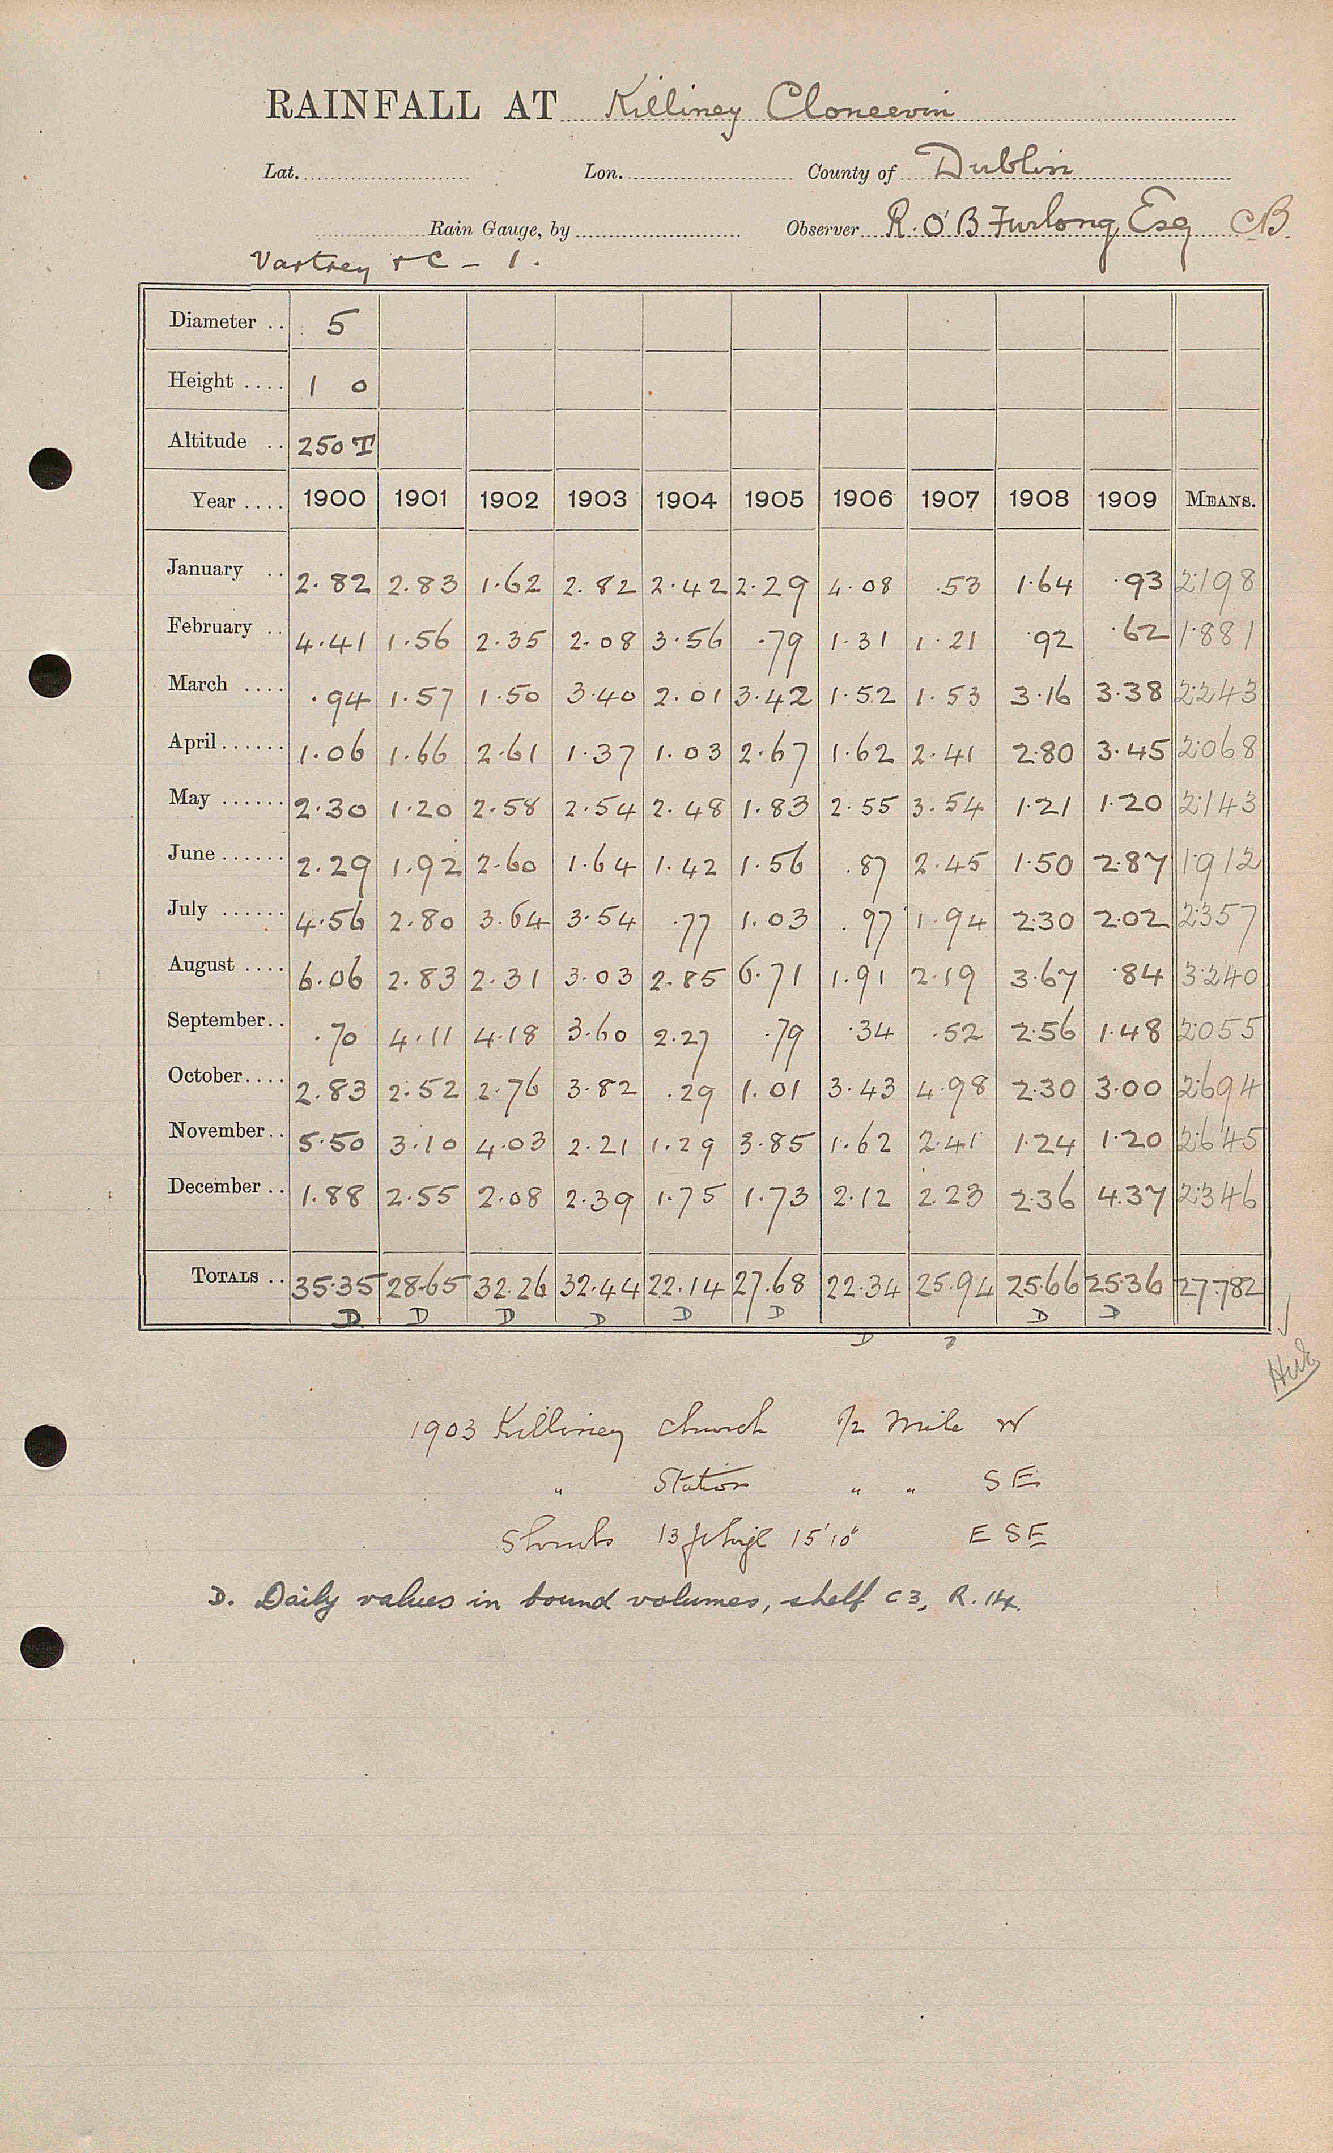 RAINFALL AT Killiney Cloneevin
Lat. Lon. County of Dublin
Rain Gauge, by Observer R. O'B Furlong Esq CB
Vartrey & C - 1.
Diameter .. 5
Height .... 1 0
Altitude .. 250 T
Year .... 1900 1901 1902 1903 1904 1905 1906 1907 1908 1909 MEANS.
January .. 2.82 2.83 1.62 2.82 2.42 2.29 4.08 .53 1.64 .93 2.198
February .. 4.41 1.56 2.35 2.08 3.56 .79 1.31 1.21 .92 .62 1.881
March .... .94 1.57 1.50 3.40 2.01 3.42 1.52 1.53 3.16 3.38 2.243
April ...... 1.06 1.66 2.61 1.37 1.03 2.67 1.62 2.41 2.80 3.45 2.068
May ...... 2.30 1.20 2.58 2.54 2.48 1.83 2.55 3.54 1.21 1.20 2.143
June ...... 2.29 1.92 2.60 1.64 1.42 1.56 .87 2.45 1.50 2.87 1.912
July ...... 4.56 2.80 3.64 3.54 .77 1.03 .97 1.94 2.30 2.02 2.357
August .... 6.06 2.83 2.31 3.03 2.85 6.71 1.91 2.19 3.67 .84 3.240
September.. .70 4.11 4.18 3.60 2.27 .79 .34 .52 2.56 1.48 2.055
October.... 2.83 2.52 2.76 3.82 .29 1.01 3.43 4.98 2.30 3.00 2.694
November.. 5.50 3.10 4.03 2.21 1.29 3.85 1.62 2.41 1.24 1.20 2.645
December .. 1.88 2.55 2.08 2.39 1.75 1.73 2.12 2.23 2.36 4.37 2.346
TOTALS .. 35.35 28.65 32.26 32.44 22.14 27.68 22.34 25.94 25.66 25.36 27.782
D D D D D D D D D D
1903 Killiney Church 1/2 Mile W
" Station " " SE
Shrubs 13 ft high 15'10" E SE
D. Daily values in bound volumes, shelf C3, R.14.